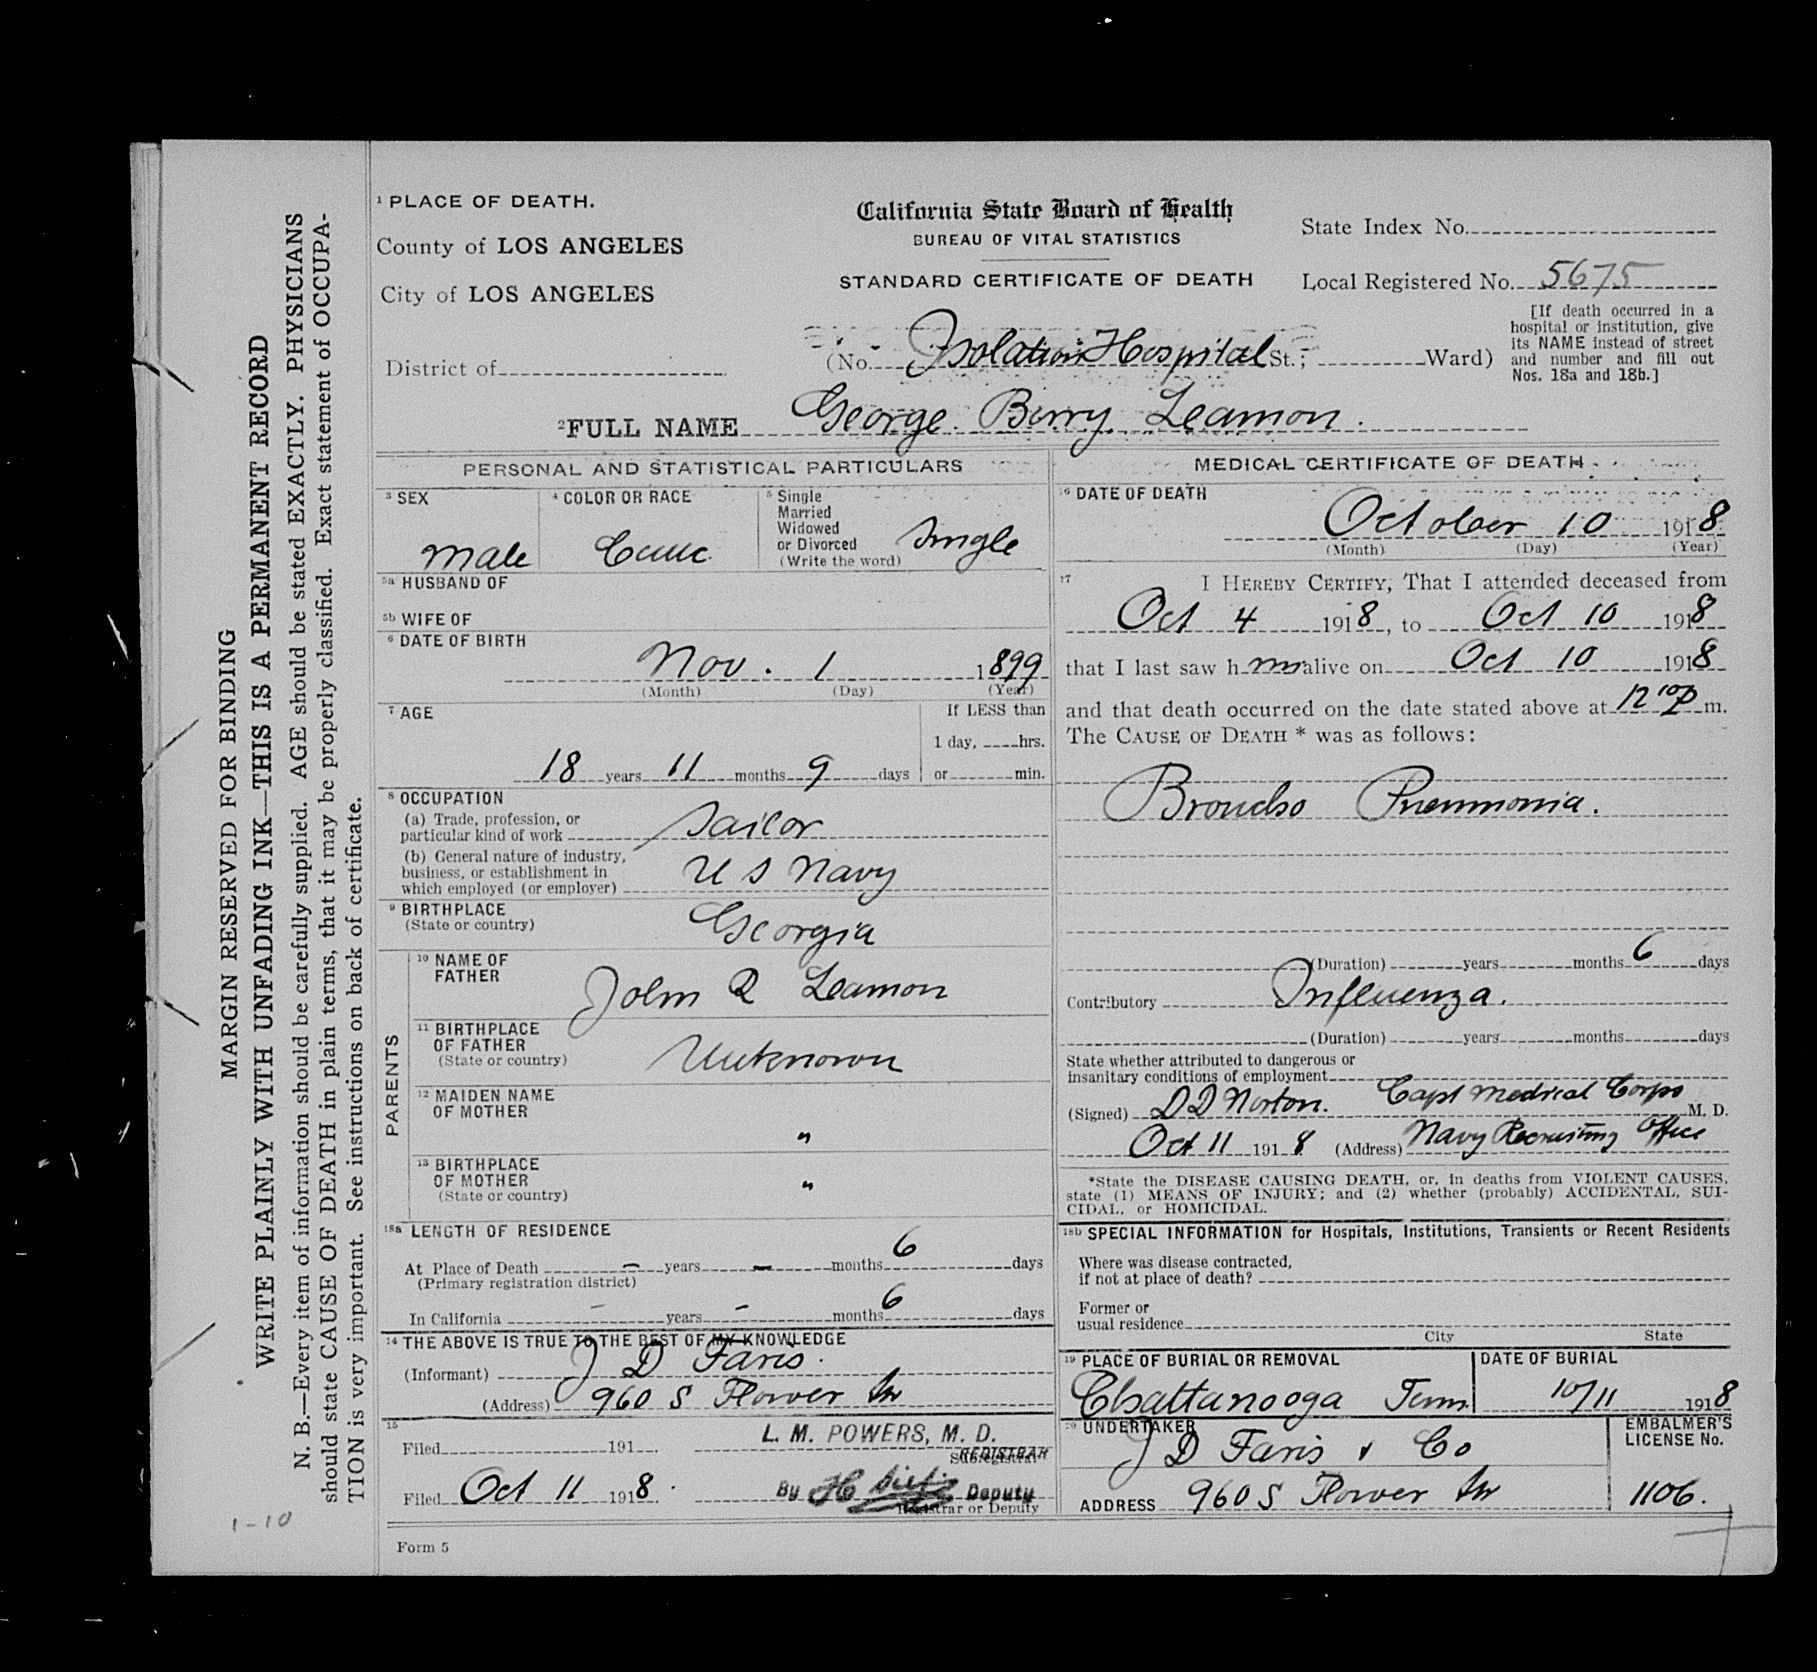 MARGIN RESERVED FOR BINDING
WRITE PLAINLY WITH UNFADING INK—THIS IS A PERMANENT RECORD
N. B.—Every item of information should be carefully supplied. AGE should be stated EXACTLY. PHYSICIANS
should state CAUSE OF DEATH in plain terms, that it may be properly classified. Exact statement of OCCUPA-
TION is very important. See instructions on back of certificate.
1-10
1 PLACE OF DEATH.
County of LOS ANGELES
City of LOS ANGELES
California State Board of Health
BUREAU OF VITAL STATISTICS
STANDARD CERTIFICATE OF DEATH
State Index No.
Local Registered No. 5675
[If death occurred in a
hospital or institution, give
its NAME instead of street
and number and fill out
Nos. 18a and 18b.]
District of (No. Isolation Hospital St.; Ward)
2 FULL NAME George Berry Leamon.
PERSONAL AND STATISTICAL PARTICULARS
3 SEX
male
4 COLOR OR RACE
Cauc.
5 Single
Married
Widowed
or Divorced
(Write the word)
Single
5a HUSBAND OF
5b WIFE OF
6 DATE OF BIRTH
Nov. 1 1899
(Month) (Day) (Year)
7 AGE
18 years 11 months 9 days
If LESS than
1 day, hrs.
or min.
8 OCCUPATION
(a) Trade, profession, or
particular kind of work Sailor
(b) General nature of industry,
business, or establishment in
which employed (or employer) U S Navy
9 BIRTHPLACE
(State or country) Georgia
PARENTS
10 NAME OF
FATHER John R Leamon
11 BIRTHPLACE
OF FATHER
(State or country) Unknown
12 MAIDEN NAME
OF MOTHER
"
13 BIRTHPLACE
OF MOTHER
(State or country) "
18a LENGTH OF RESIDENCE
At Place of Death – years – months 6 days
(Primary registration district)
In California – years – months 6 days
14 THE ABOVE IS TRUE TO THE BEST OF MY KNOWLEDGE
(Informant) J D Faris.
(Address) 960 S Flower
15
Filed 191
L. M. POWERS, M. D.
REGISTRAR
Subregistrar
Filed Oct 11 1918.
By Deputy
Registrar or Deputy
Form 5
MEDICAL CERTIFICATE OF DEATH
16 DATE OF DEATH
October 10 1918
(Month) (Day) (Year)
17 I HEREBY CERTIFY, That I attended deceased from
Oct 4 1918, to Oct 10 1918
that I last saw h im alive on Oct 10 1918
and that death occurred on the date stated above at 12 10 P m.
The CAUSE OF DEATH * was as follows:
Broncho Pneumonia.
(Duration) years months 6 days
Contributory Influenza.
(Duration) years months days
State whether attributed to dangerous or
insanitary conditions of employment
(Signed) D D Norton. Capt Medical Corps M. D.
Oct 11 1918 (Address) Navy Recruiting Office
*State the DISEASE CAUSING DEATH, or, in deaths from VIOLENT CAUSES,
state (1) MEANS OF INJURY; and (2) whether (probably) ACCIDENTAL, SUI-
CIDAL, or HOMICIDAL.
18b SPECIAL INFORMATION for Hospitals, Institutions, Transients or Recent Residents
Where was disease contracted,
if not at place of death?
Former or
usual residence
City State
19 PLACE OF BURIAL OR REMOVAL
Chattanooga Tenn
DATE OF BURIAL
10/11 1918
20 UNDERTAKER
J D Faris & Co
ADDRESS 960 S Flower
EMBALMER'S
LICENSE No.
1106.